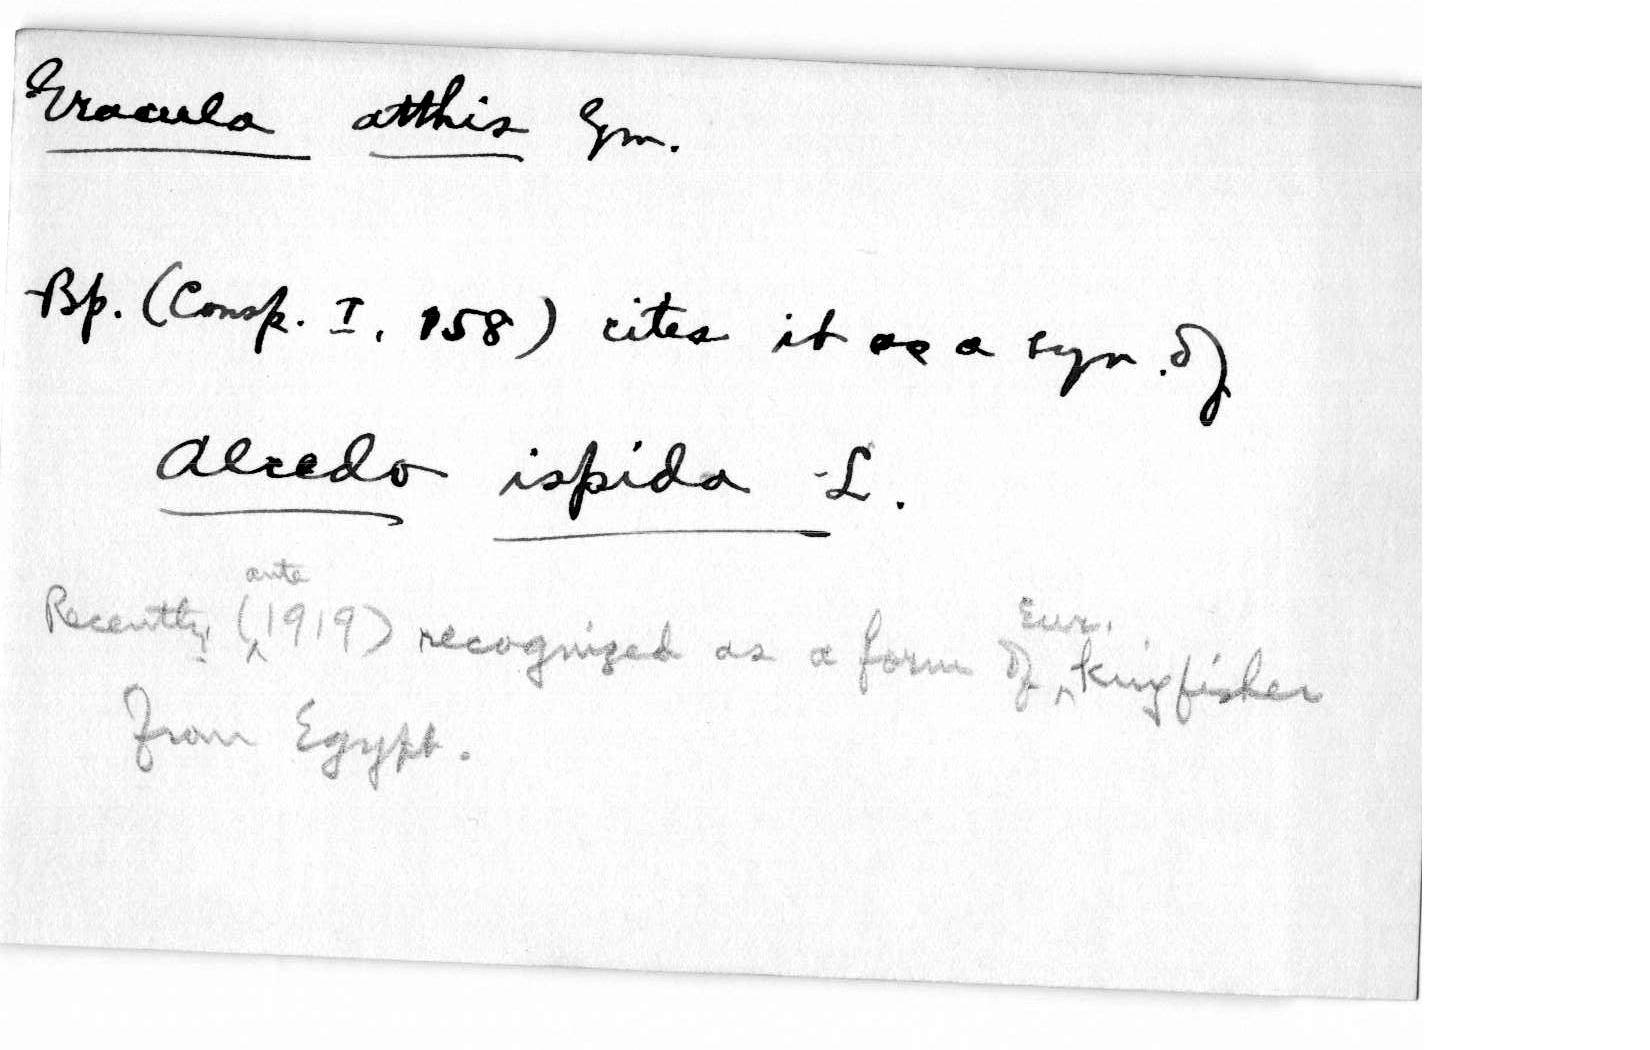 Gracula atthis Gm.
Bp. (Consp. I, 158) cites it as a syn. of
Alcedo ispida L.
Recently (ante 1919) recognized as a form of Eur. kingfisher
from Egypt.